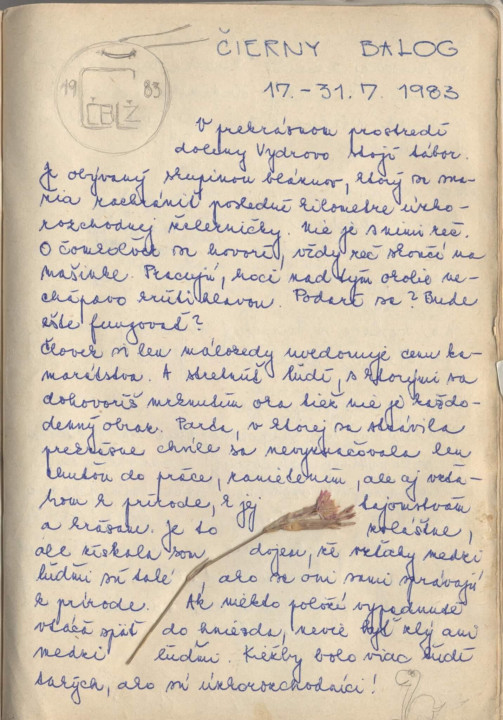 ČIERNY BALOG
19 ČBLŽ 83
17. - 31. 7. 1983
V prekrásnom prostredí
doliny Vydrovo stojí tábor.
Je obývaný skupinou bláznov, ktorý sa sna-
žia zachrániť posledné kilometre úzko-
rozchodnej železničky. Nie je s nimi reč.
O čomkoľvek sa hovorí, vždy reč skončí na
mašinke. Pracujú, hoci nad tým okolie ne-
chápavo krúti hlavou. Podarí sa? Bude
ešte fungovať?
Človek si len málokedy uvedomuje cenu ka-
marátstva. A stretnúť ľudí, s ktorými sa
dohovoríš mrknutím oka tiež nie je každo-
denný obraz. Parta, v ktorej sa strávila
prekrásne chvíle sa nevyznačovala len
chuťou do práce, zanietením, ale aj vzťa-
hom k prírode, k jej tajomstvám
a krásam. Je to zvláštne,
ale získala som dojem, že vzťahy medzi
ľuďmi sú také, ako sa oni sami správajú
k prírode. Ak niekto položí vypadnuté
vtáča späť do hniezda, nevie byť zlý ani
medzi ľuďmi. Kiežby bolo viac ľudí
takých, ako sú úzkorozchodníci!